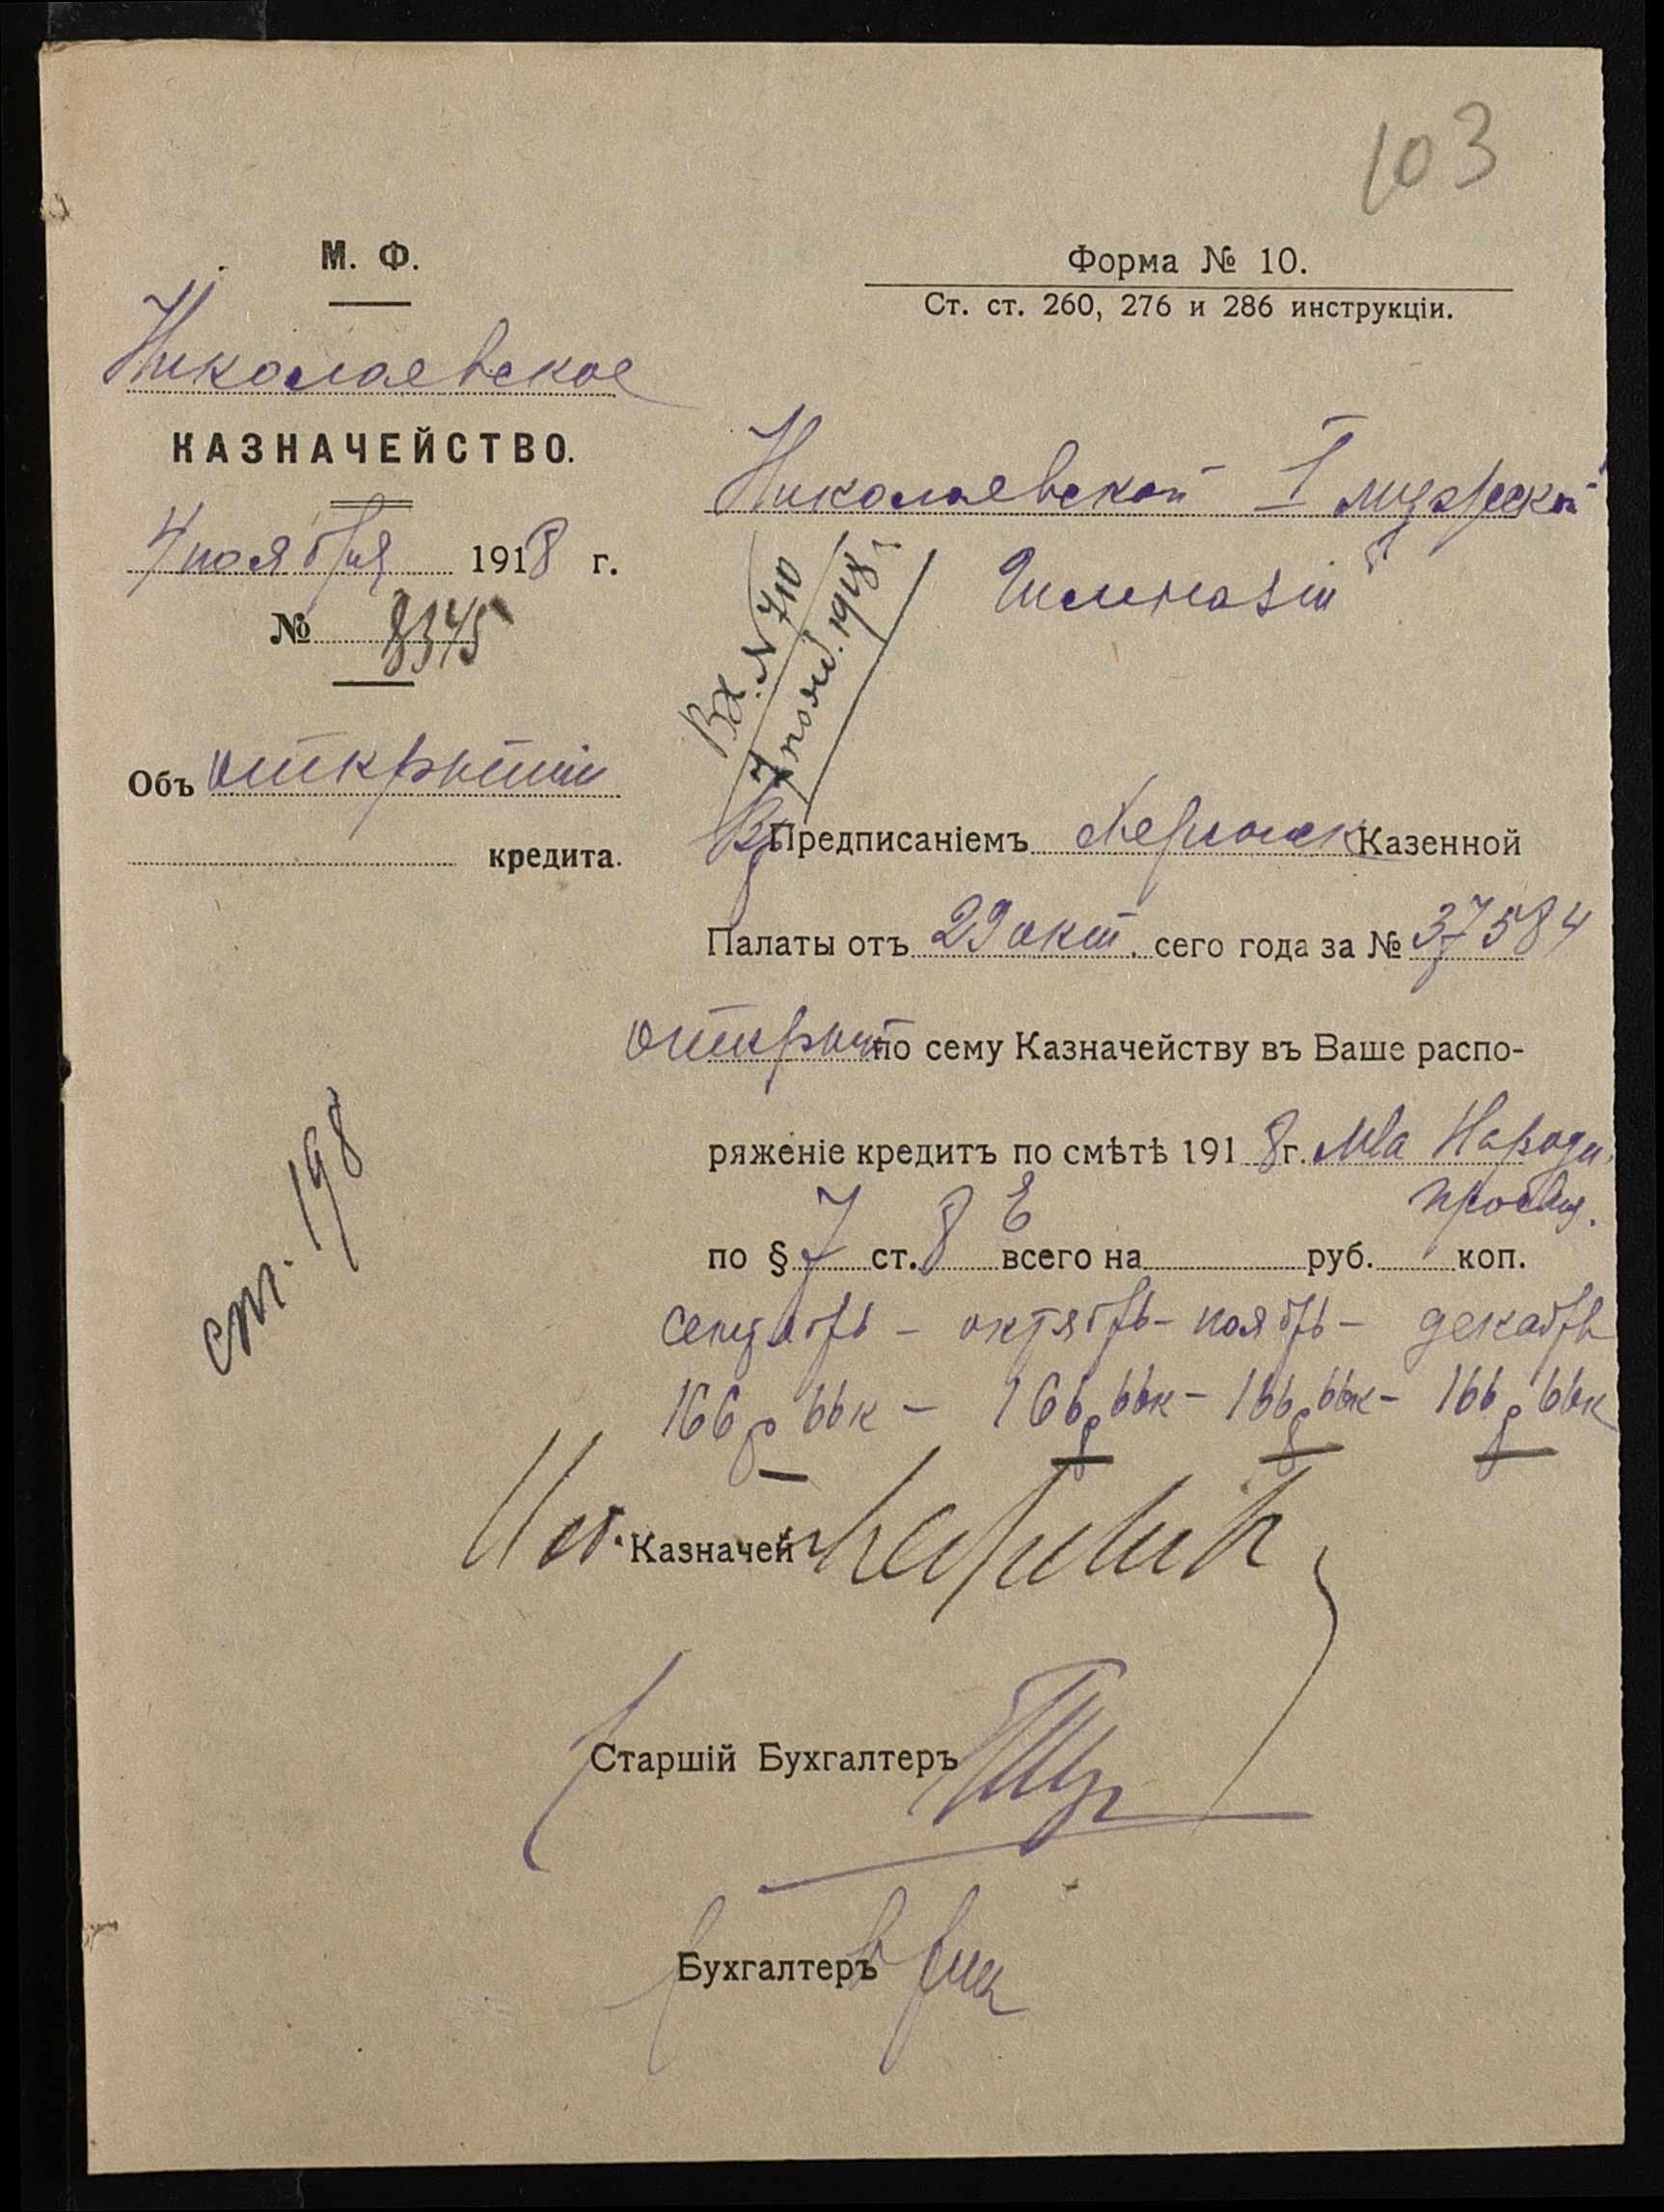 103
М. Ф.
Николаевское
КАЗНАЧЕЙСТВО.
4 ноября 1918 г.
№ 8345
Объ открытіи
кредита.
ст. 198
Форма № 10.
Ст. ст. 260, 276 и 286 инструкціи.
Николаевской I мужской
Гимназіи
Вх. N 710
7 нояб. 1918 г.
Предписаніемъ Херсонск Казенной
Палаты отъ 29 окт. сего года за № 37584
открыт по сему Казначейству въ Ваше распо-
ряженіе кредитъ по смѣтѣ 1918 г. М-ва Народн.
просвѣщ.
по § 7 ст. 8 Е всего на руб. коп.
сентябрь - октябрь - ноябрь - декабрь
166 р 66 к - 166 р 66 к - 166 р 66 к - 166 р 66 к
Казначей
Старшій Бухгалтеръ
Бухгалтеръ